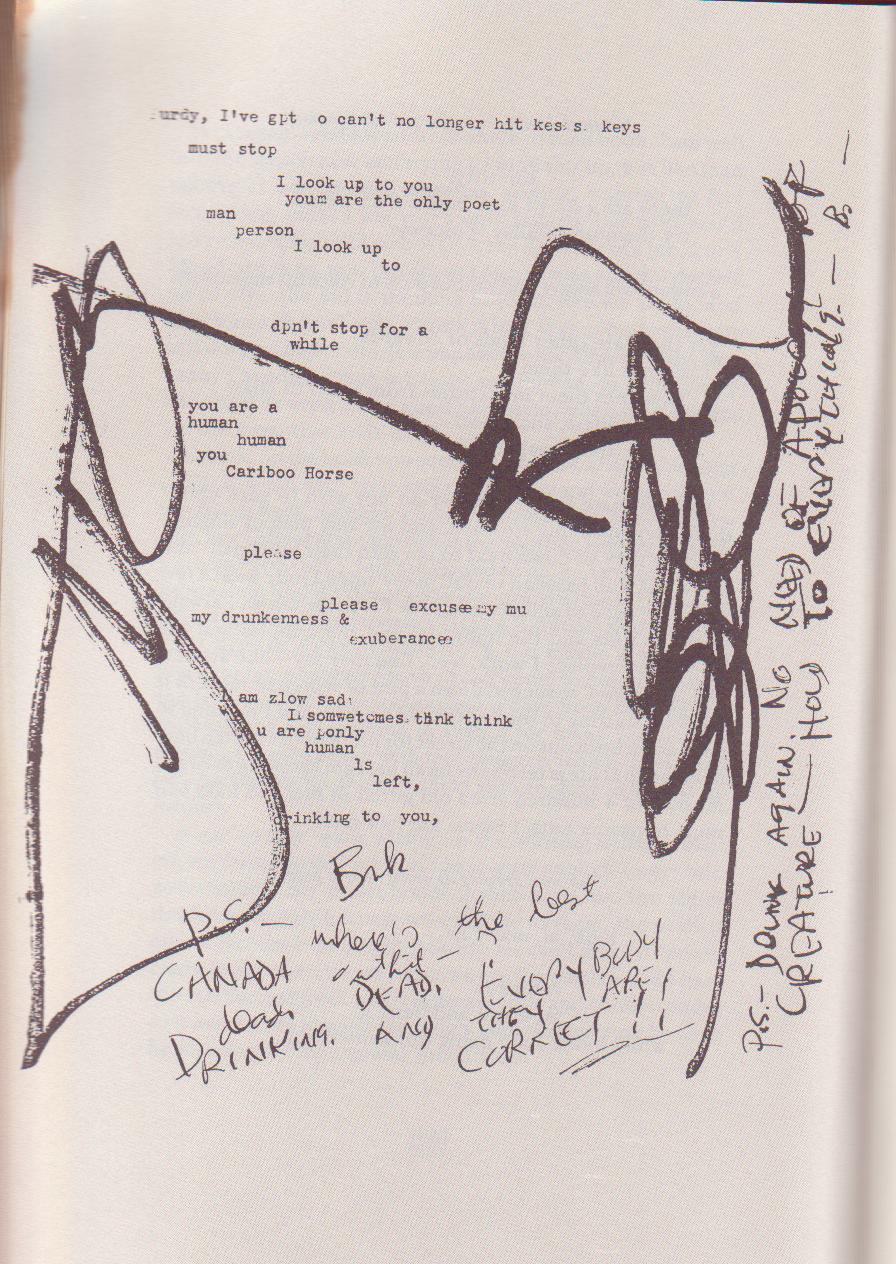 urdy, I've gpt o can't no longer hit kes s keys
must stop
I look up to you
youm are the ohly poet
man
person
I look up
to
dpn't stop for a
while
you are a
human
human
you
Cariboo Horse
please
please excuse my mu
my drunkenness &
exuberance
I am zlow sad
I somwetomes think think
u are ponly
human
ls
left,
drinking to you,
Buk
P.S.— where's the best
CANADA
dead. DEAD. EVERYBODY
DRINKING. AND THEY ARE
CORRECT!!
P.S.— DRUNK AGAIN. NO MAN OF
CREATURE — HOLD TO EVERYTHING. — B. —